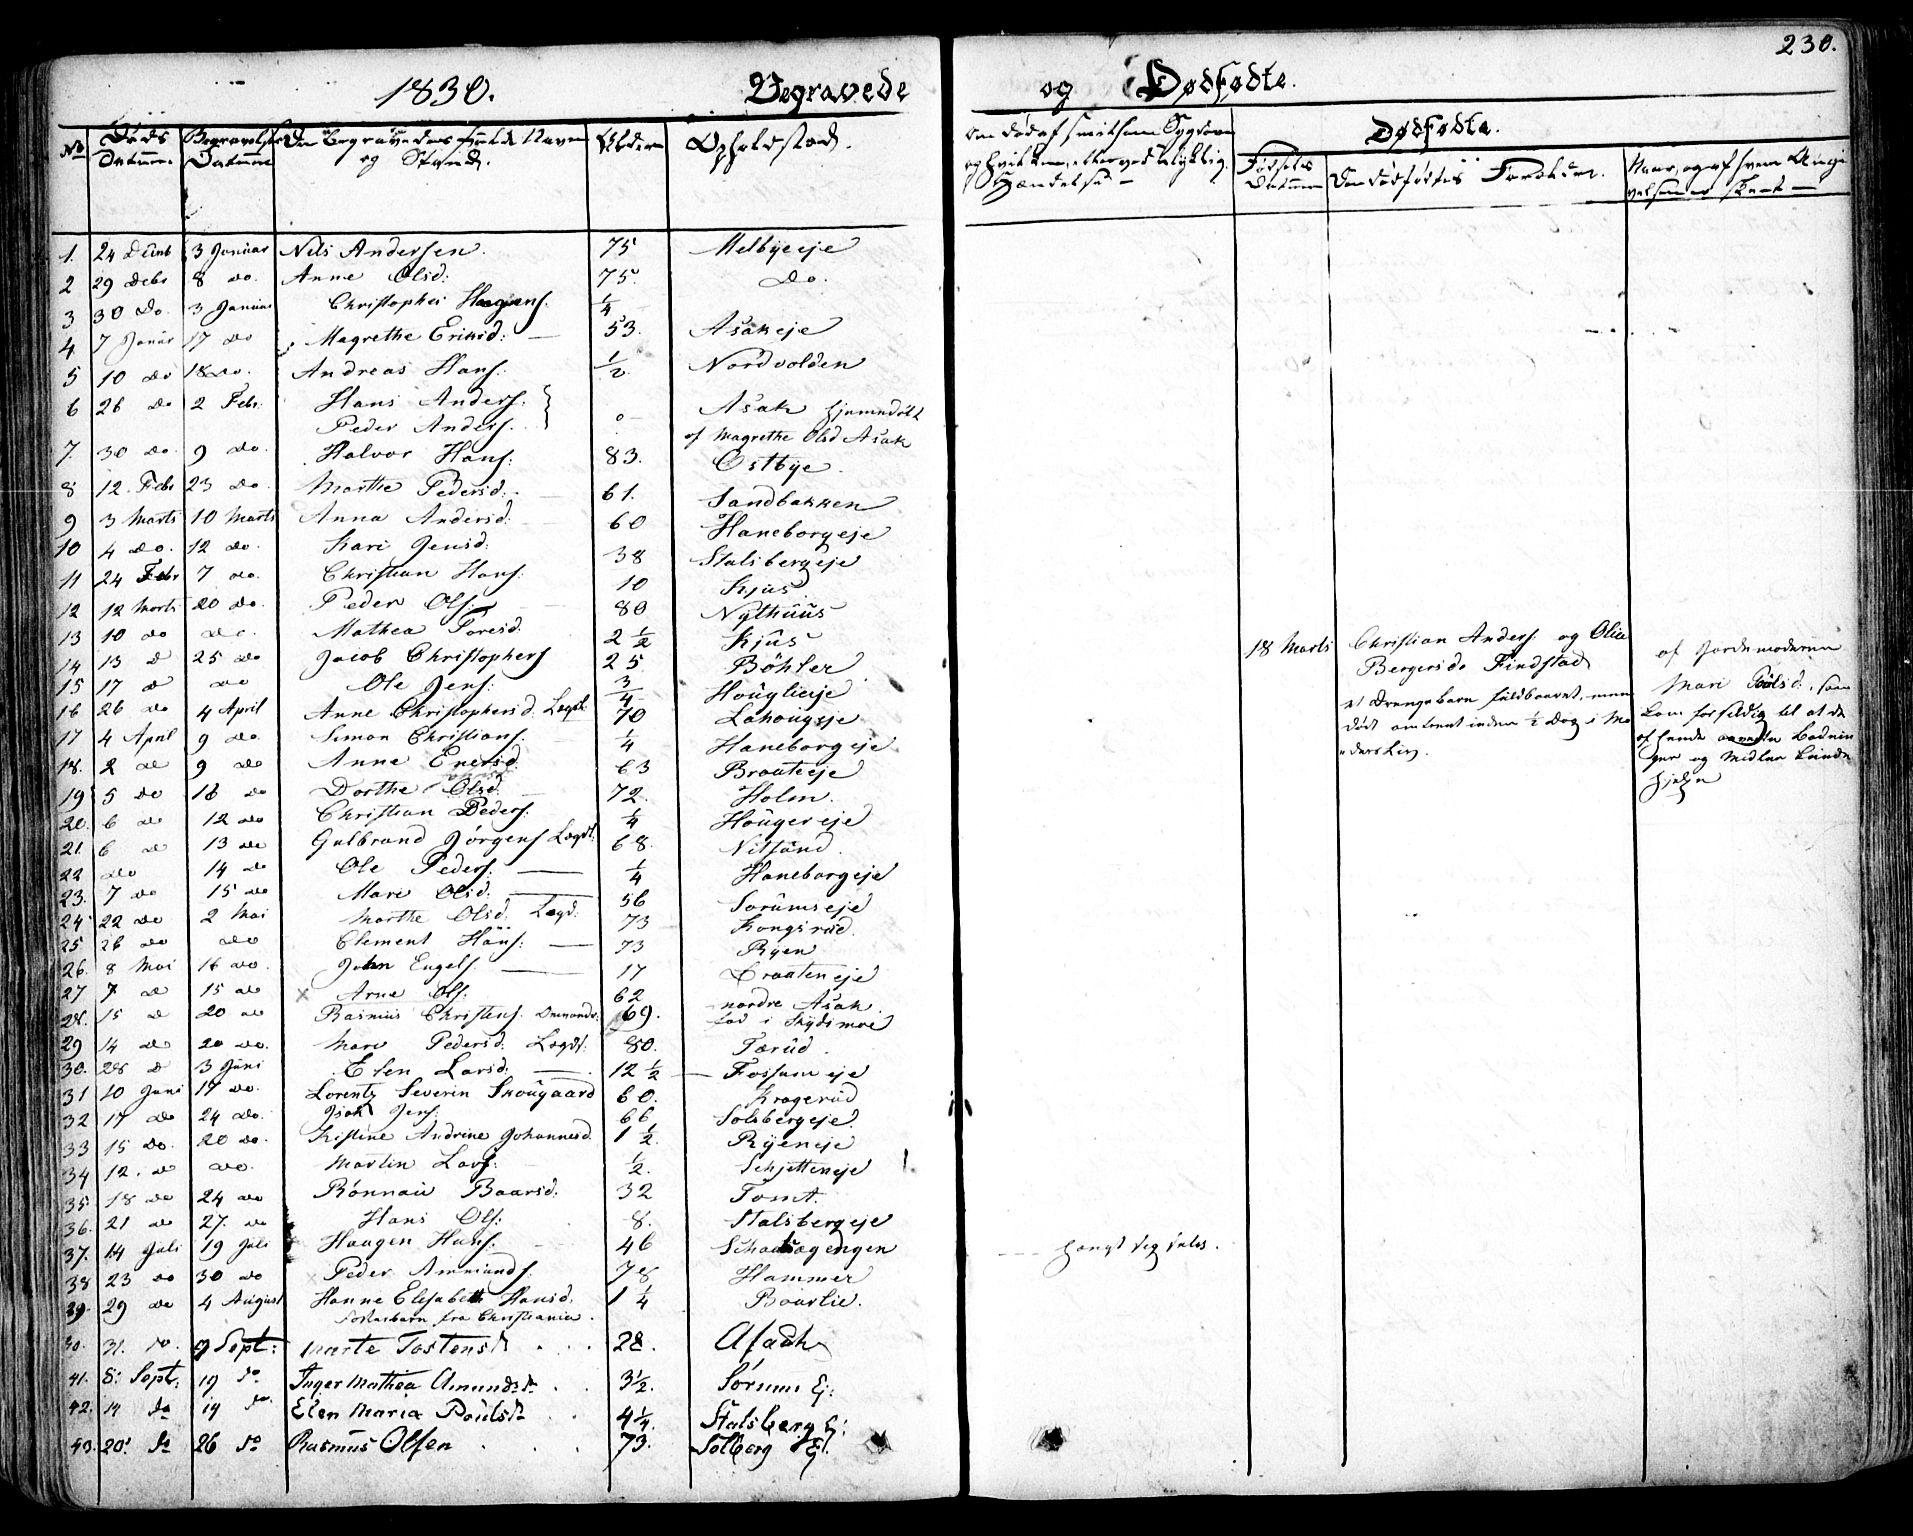 230.
1830. Begravede og Dødfødte.
No Døds Datum. Begravelses Datum Den Begravedes fulde Navn og Stand. Alder Opholdsted.
Om død af smitsom Sygdom og hvilken, eller ved ulykkelig Hændelse.
Dødfødte.
Fødsels Datum Den dødfødtes Forældre. Naar, og af hvem Angivelsen er skeet
1. 24 Decbr 3 Januar Nils Andersen. 75 Melbyeeje
2 29 Debr 8 do. Anne Olsd: 75. Do.
3 30 Do. 3 Januar Christopher Haagens. 1/4
4. 7 Januar 17 do Magrethe Eriksd: 53. Asakeje
5 10 do 18 do. Andreas Hans: 1/2. Nordvolden
6 26 do 2 Febr: Hans Anders: } o Asak hjemmedøbt
Peder Anders. af Magrethe Olsd Asak
7. 30 do. 9 do. Halvor Hans: 83. Ostbye.
8 12. Febr 23 do. Marthe Pedersd. 61. Sandbakken
9 3 Marts 10 Marts Anna Andersd: 60 Haneborgeje
10 4 do. 12 do. Kari Jensd: 38 Stalsbergeje
11 24 Febr 7 do. Christian Hans: 10 Kjus
12 12 Marts 20 do. Peder Ols: 80 Nythuus
13 10 do do. Mathea Toresd. 2 1/2 Kjus
14 13 d 25 do Jacob Christophers 25 Böhler
15 17 d do Ole Jens: 3/4 Houglieje
16 26 do 4 April Anne Christophersd. Lægd: 70 Lahougeje
17 4 April 9 do. Simon Christians. 1/4 Haneborgeje
18. 2 do 9 do Anne Ericsd. 63 Braateeje
19 5 do 16 do Dorthe Olsd. 72. Holm.
20. 6 do 12 do Christian Peders: 1/4 Hougereje
21. 6 d 13 do Gulbrand Jörgens Lægdl: 68. Nitsund.
22 do 14 do Ole Peders: 1/4 Haneborgeje
23. 7 do 15 do Mari Olsd. 56 Sorumseje
24 22 do 2 Mai Marthe Olsd: Lægd: 73 Kongsrud.
25 26 do do Clement Hans: 73 Ryen
26. 8 Mai 16 do. John Engels. 17 Braateneje
27 7 d 15 do x Arne Ols: 62 nordre Asak.
28. 15 d 20 do Rasmus Christens. 69. fød i Skydsmoe
29 14 do 20 do. Mari Pedersd. Lægdl: 80. Tærud.
30. 28 d 3 Juni Elen Larsd: 12 1/2 Fossumeje
31 10 Juni 17 do. Lorentz Severin Skougaard 60. Krogerud
32 17 do 24 do. Isak Jens: 66 Solsbergeje
33 15 do. 20 do. Kistine Andrine Johannesd. 1 1/2. Ryeneje
34 12. d do. Martin Lars: 1/2. Schjetteneje
35 18 do 24 do Rönnau Baarsd: 32 Tomt.
36. 21 do 27. do Hans Ols: 8. Stalsbergeje
37. 14 Juli 19 Juli Haagen Hans: 46 hængt sig selv.
38 23 do 30 do Peder Ammunds. 78 Hammer
39. 29 do 4 August Hanne Elisabeth Hansd. 1 1/4 Baarlie.
Fosterbarn fra Christiania.
40. 31. do. 9 Sept: Marte Tostensd 28. Asach
41. 8: Sept: 19 do Inger Mathea Amundsd. 3 1/2. Sørum Ej:
42. 14 do 19 do Elen Maria Poulsd 4 1/4. Stalsberg Ej:
43. 20. do 26 do Rasmus Olsen 73. Solberg Ej.
18 Marts Christian Anders. og Olia
Bergersd. Findstad
et Drengebarn fuldbaaret, men
dødt omtrent inden 1/2 Dag i Mo
ders Liv.
af Jordemoderen
Mari Poulsd., som
kom forsildig til at de
af hende Bodnin
ger og Midler kunde
hjelpe